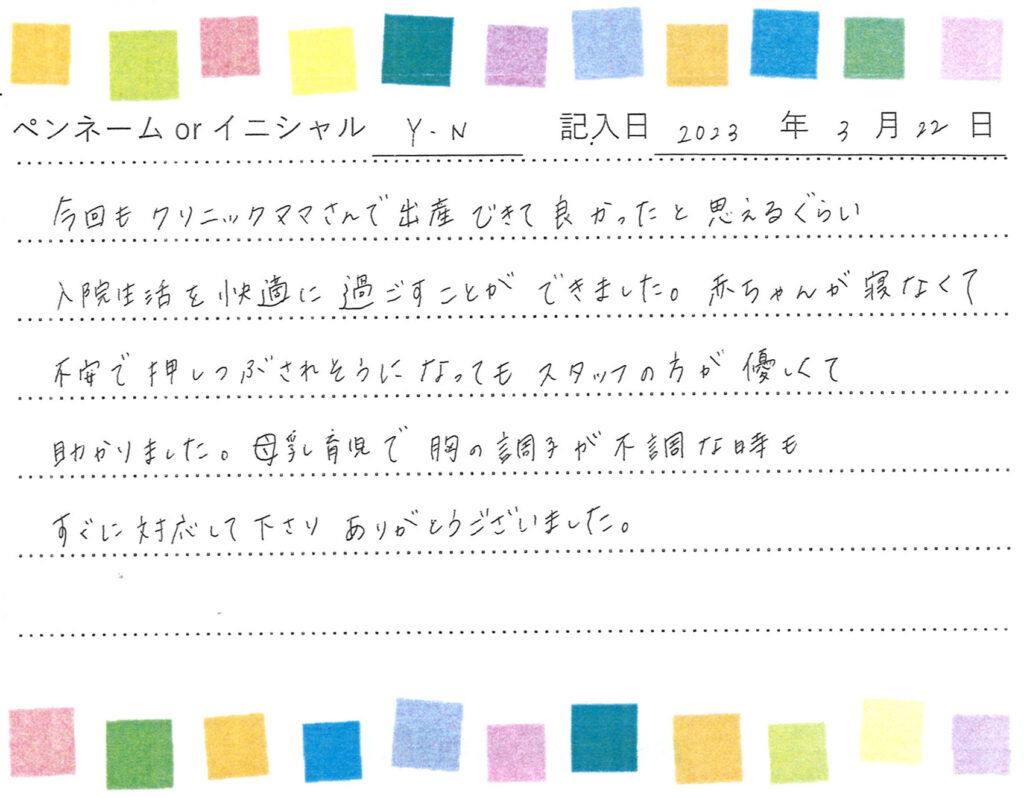 ペンネーム or イニシャル Y.N 記入日 2023 年 3 月 22 日
今回もクリニックママさんで出産できて良かったと思えるぐらい
入院生活を快適に過ごすことができました。赤ちゃんが寝なくて
不安で押しつぶされそうになってもスタッフの方が優しくて
助かりました。母乳育児で胸の調子が不調な時も
すぐに対応して下さりありがとうございました。